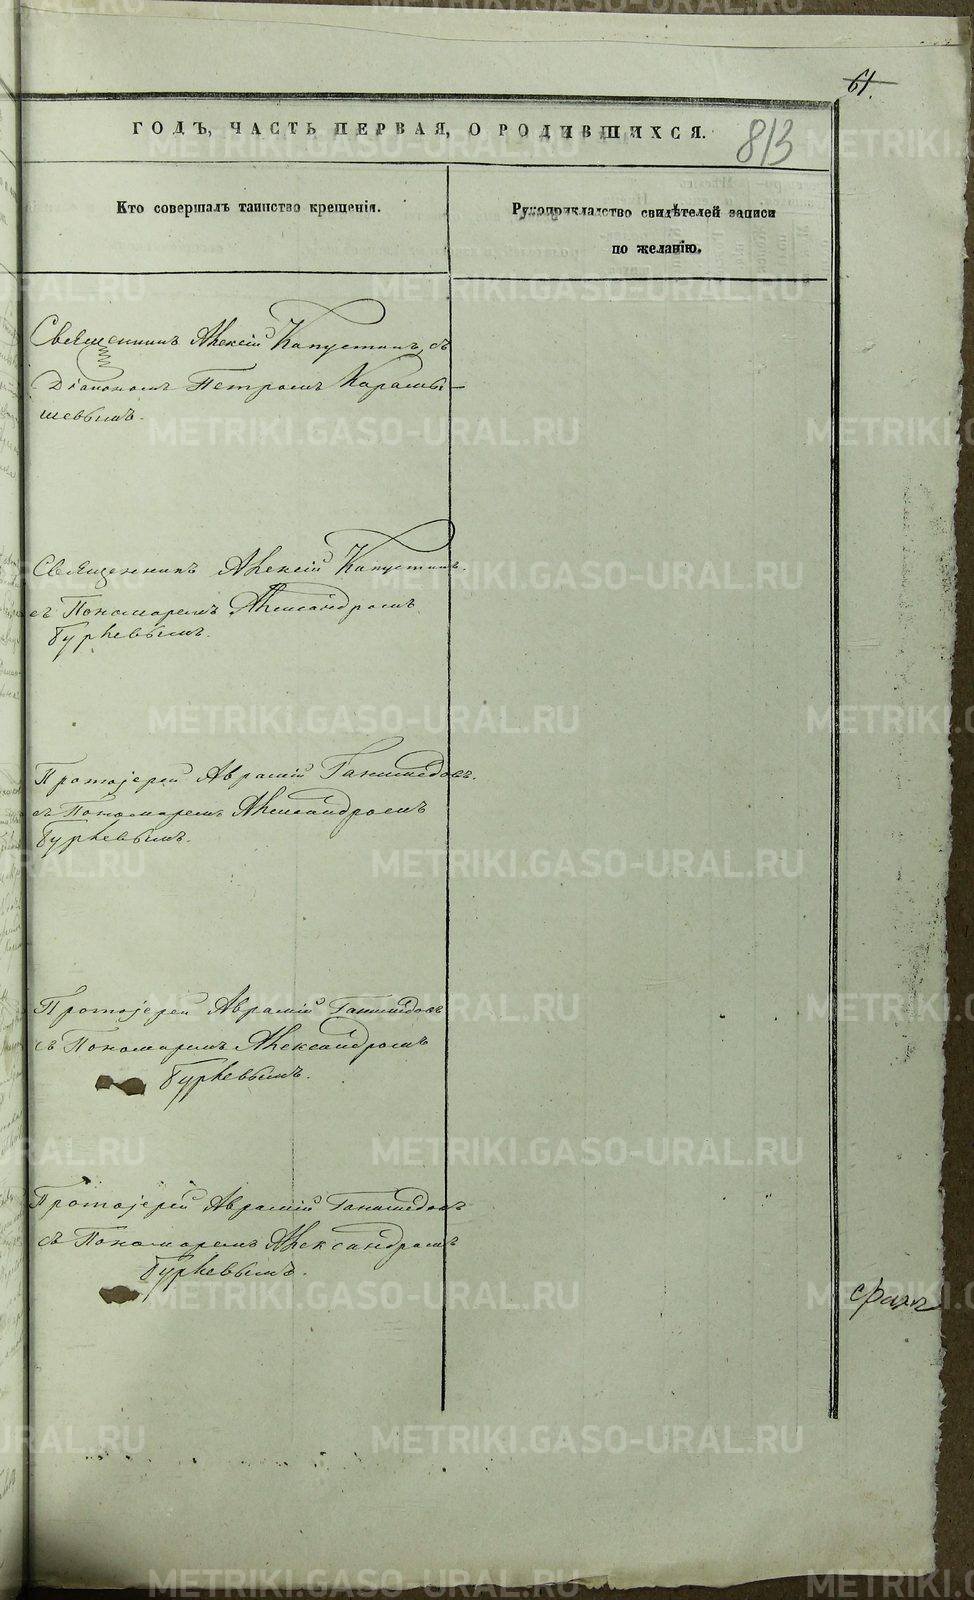 61.
ГОДЪ, ЧАСТЬ ПЕРВАЯ, О РОДИВШИХСЯ.
813
Кто совершалъ таинство крещенія.
Рукоприкладство свидѣтелей записи
по желанію.
Священникъ Алексій Капустинъ, съ
Діакономъ Петромъ Карамы-
шевымъ.
Священникъ Алексій Капустинъ.
съ Пономаремъ Александромъ
Гурьевымъ.
Протоіерей Аврамій
съ Пономаремъ Александромъ
Гурьевымъ.
Протоіерей Аврамій
съ Пономаремъ Александромъ
Гурьевымъ.
Протоіерей Аврамій
съ Пономаремъ Александромъ
Гурьевымъ.
METRIKI.GASO-URAL.RU